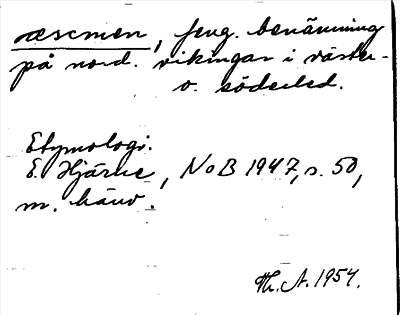 æscmen, feng. benämning
på nord. vikingar i väster-
o. söderled.
Etymologi.
E. Hjärne, NoB 1947, s. 50,
m. hänv.
Th. A. 1954.